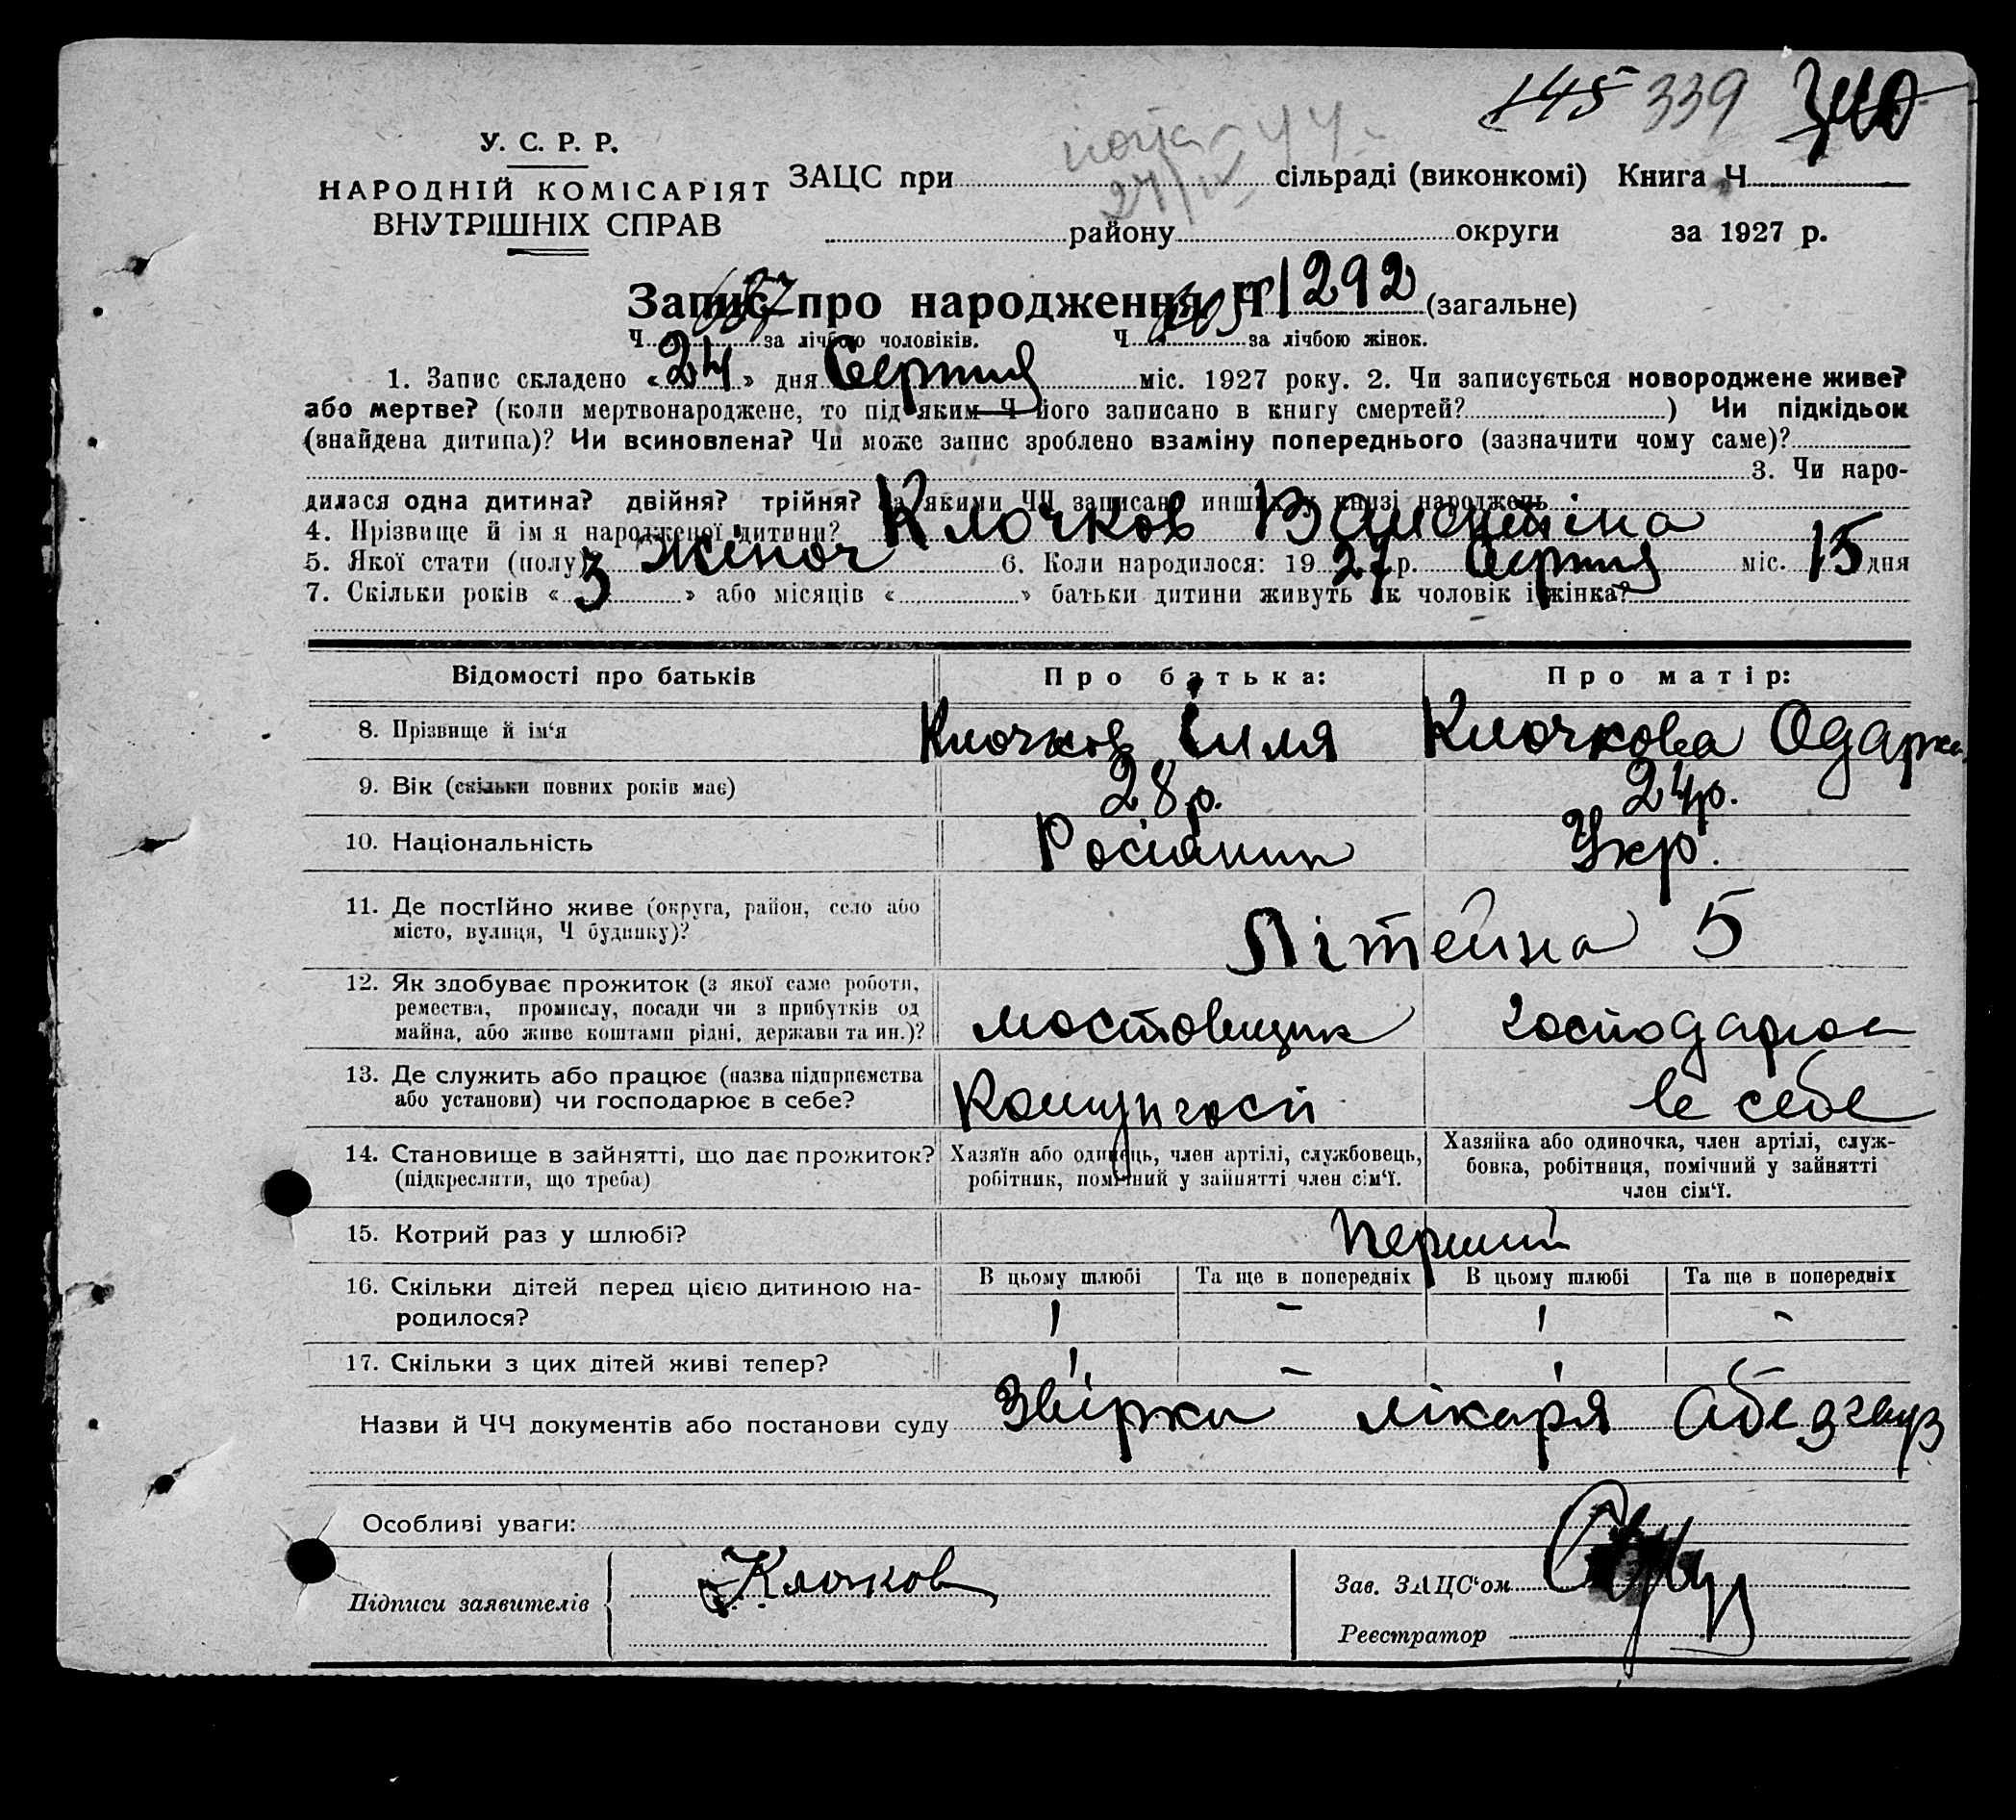 145 339 340
У. С. Р. Р.
НАРОДНІЙ КОМІСАРІЯТ
ВНУТРІШНІХ СПРАВ
ЗАЦС при сільраді (виконкомі) Книга Ч
району округи за 1927 р.
Запис про народження Ч 1292 (загальне)
Ч за лічбою чоловіків. Ч 605 за лічбою жінок.
1. Запис складено « 24 » дня Серпня міс. 1927 року. 2. Чи записується новороджене живе?
або мертве? (коли мертвонароджене, то під яким Ч його записано в книгу смертей? ) Чи підкідьок
(знайдена дитина)? Чи всиновлена? Чи може запис зроблено взаміну попереднього (зазначити чому саме)?
3. Чи наро-
дилася одна дитина? двійня? трійня? За якими ЧЧ записані инших у книзі народжень
4. Прізвище й ім'я народженої дитини? Клочков Валентіна
5. Якої стати (полу)? Жіноч 6. Коли народилося: 1927 р. Серпня міс. 15 дня
7. Скільки років « 3 » або місяців « » батьки дитини живуть як чоловік і жінка?
Відомості про батьків Про батька: Про матір:
8. Прізвище й ім‘я Клочков Ілля Клочкова Одарка
9. Вік (скільки повних років має) 28 р. 24 р.
10. Національність Росіянин Укр.
11. Де постійно живе (округа, район, село або
місто, вулиця, Ч будинку)? Літейна 5
12. Як здобуває прожиток (з якої саме роботи,
ремества, промислу, посади чи з прибутків од
майна, або живе коштами рідні, держави та ин.)? мостовщик господарює
13. Де служить або працює (назва підприємства
або установи) чи господарює в себе? Комунгосп в себе
14. Становище в зайнятті, що дає прожиток?
(підкреслити, що треба)
Хазяїн або одинець, член артілі, службовець,
робітник, помічний у зайнятті член сім‘ї.
Хазяйка або одиночка, член артілі, служ-
бовка, робітниця, помічний у зайнятті
член сім‘ї.
15. Котрий раз у шлюбі? Перший
16. Скільки дітей перед цією дитиною на-
родилося?
В цьому шлюбі Та ще в попередніх В цьому шлюбі Та ще в попередніх
1 - 1 -
17. Скільки з цих дітей живі тепер? 1 - 1 -
Назви й ЧЧ документів або постанови суду Звірка лікаря
Особливі уваги:
Підписи заявителів Клочков
Зав. ЗАЦС‘ом
Реєстратор